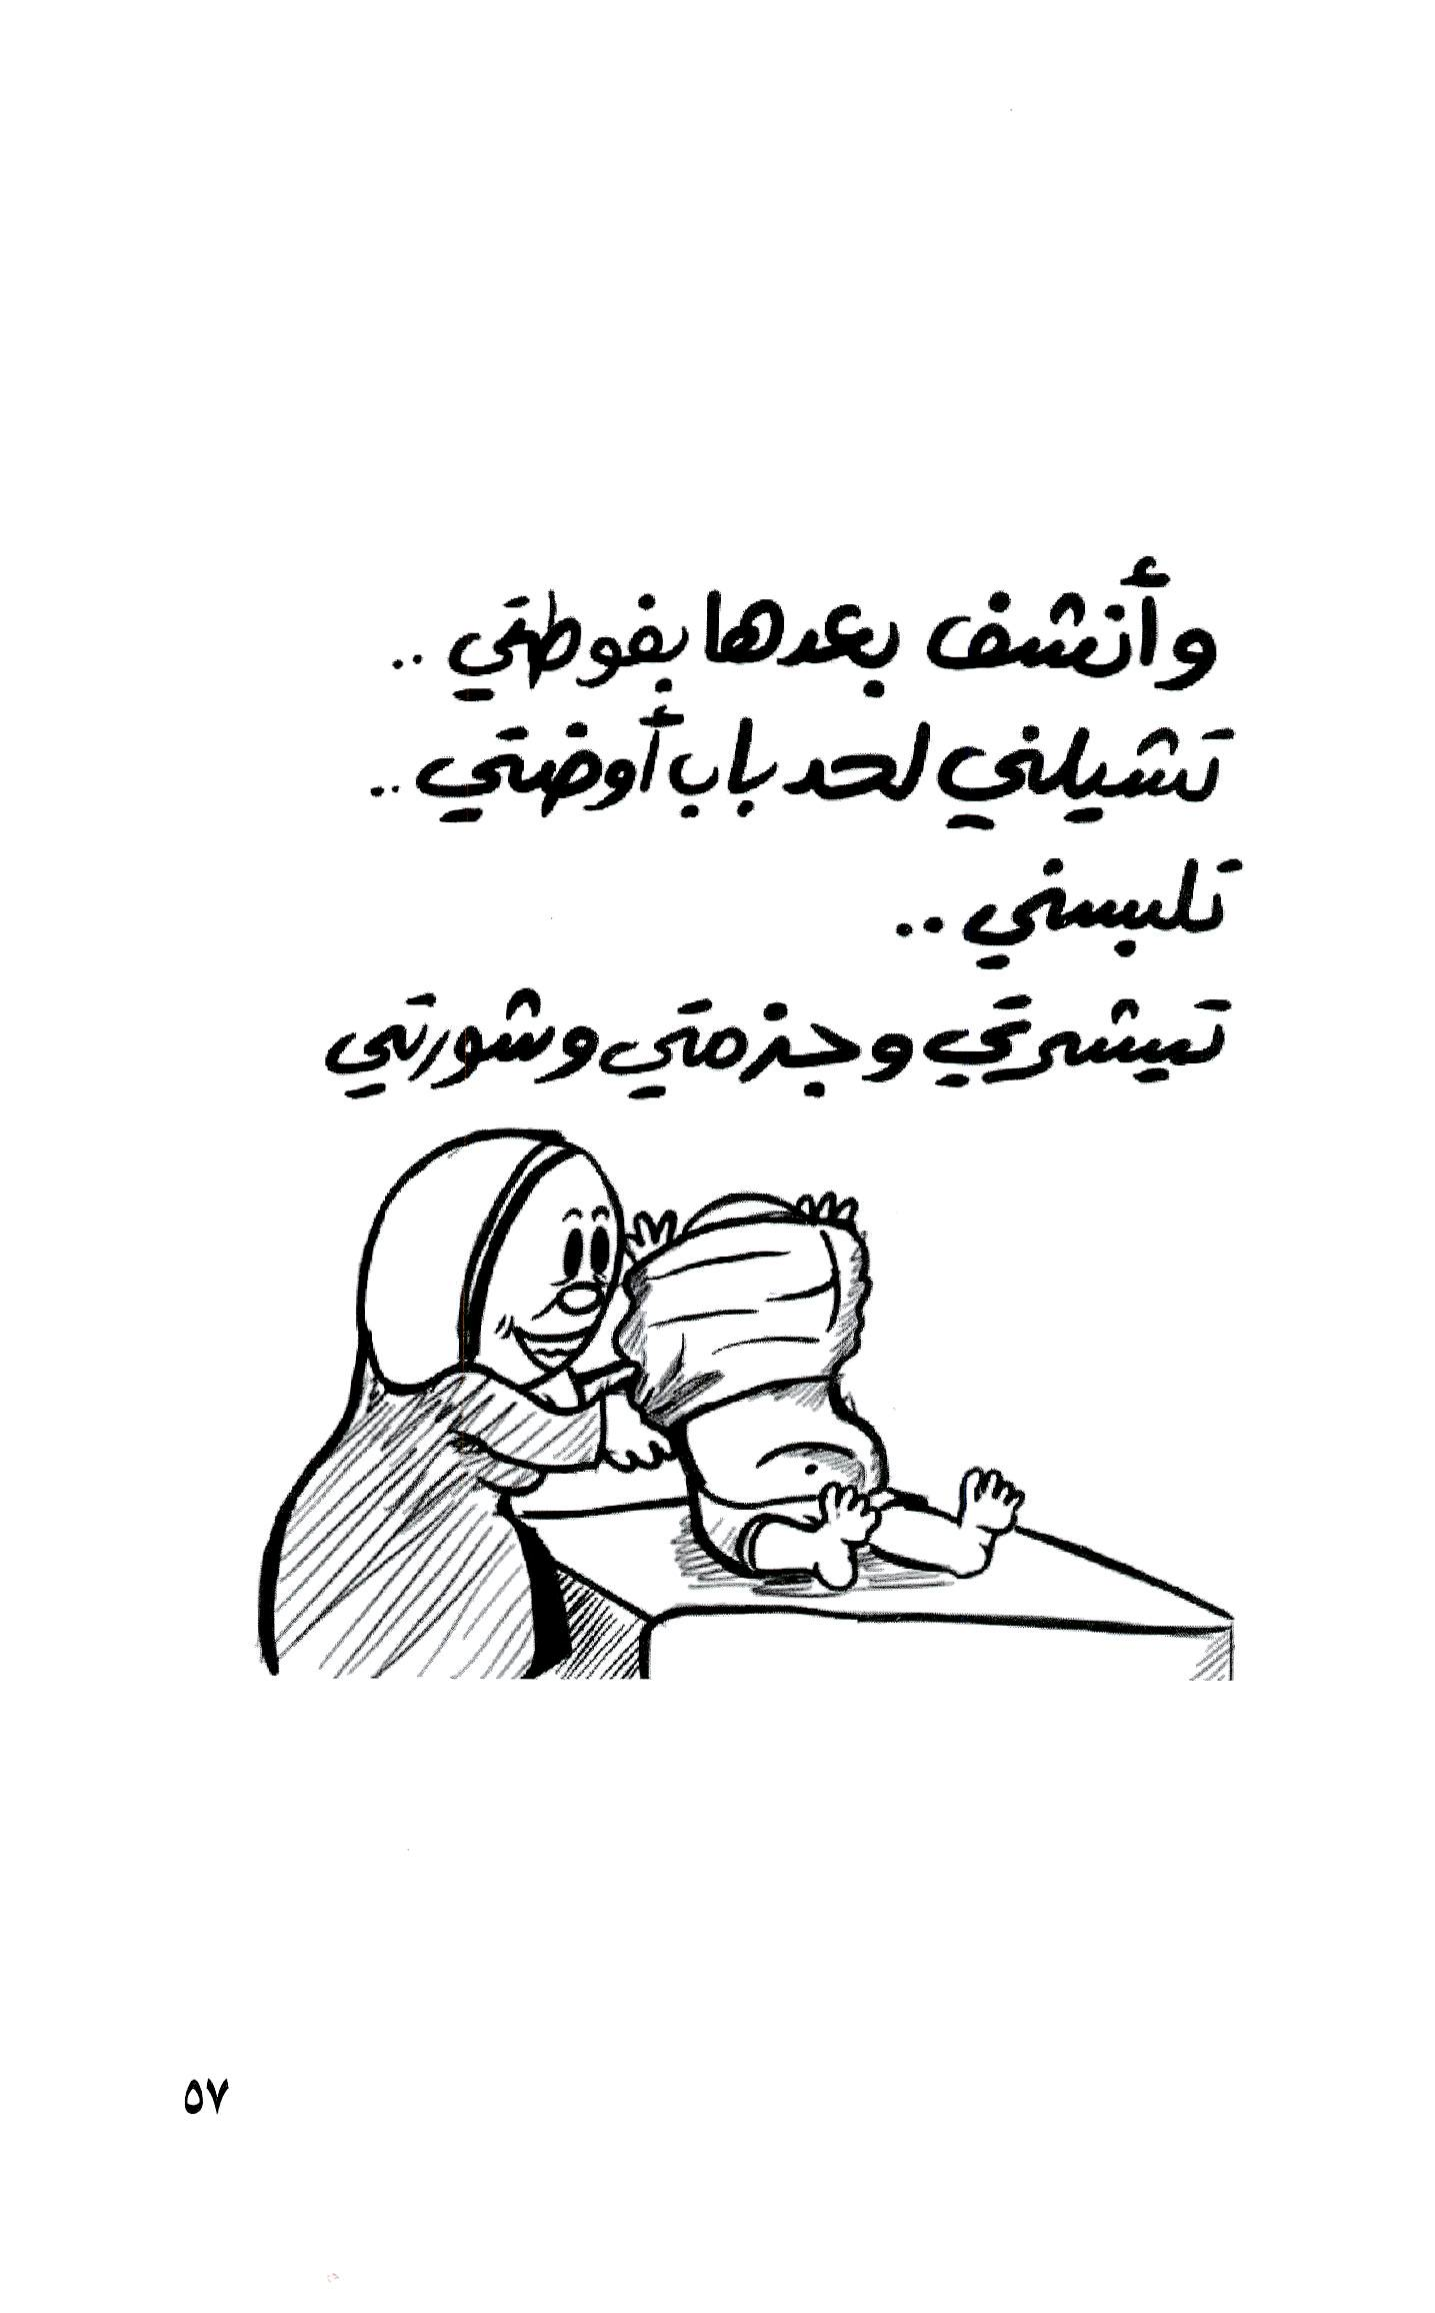 وأنشف بعدها بفوطتي ..
تشيلني لحد باب أوضتي ..
تلبسني ..
تيشرتي وجزمتي وشورتي
٥٧